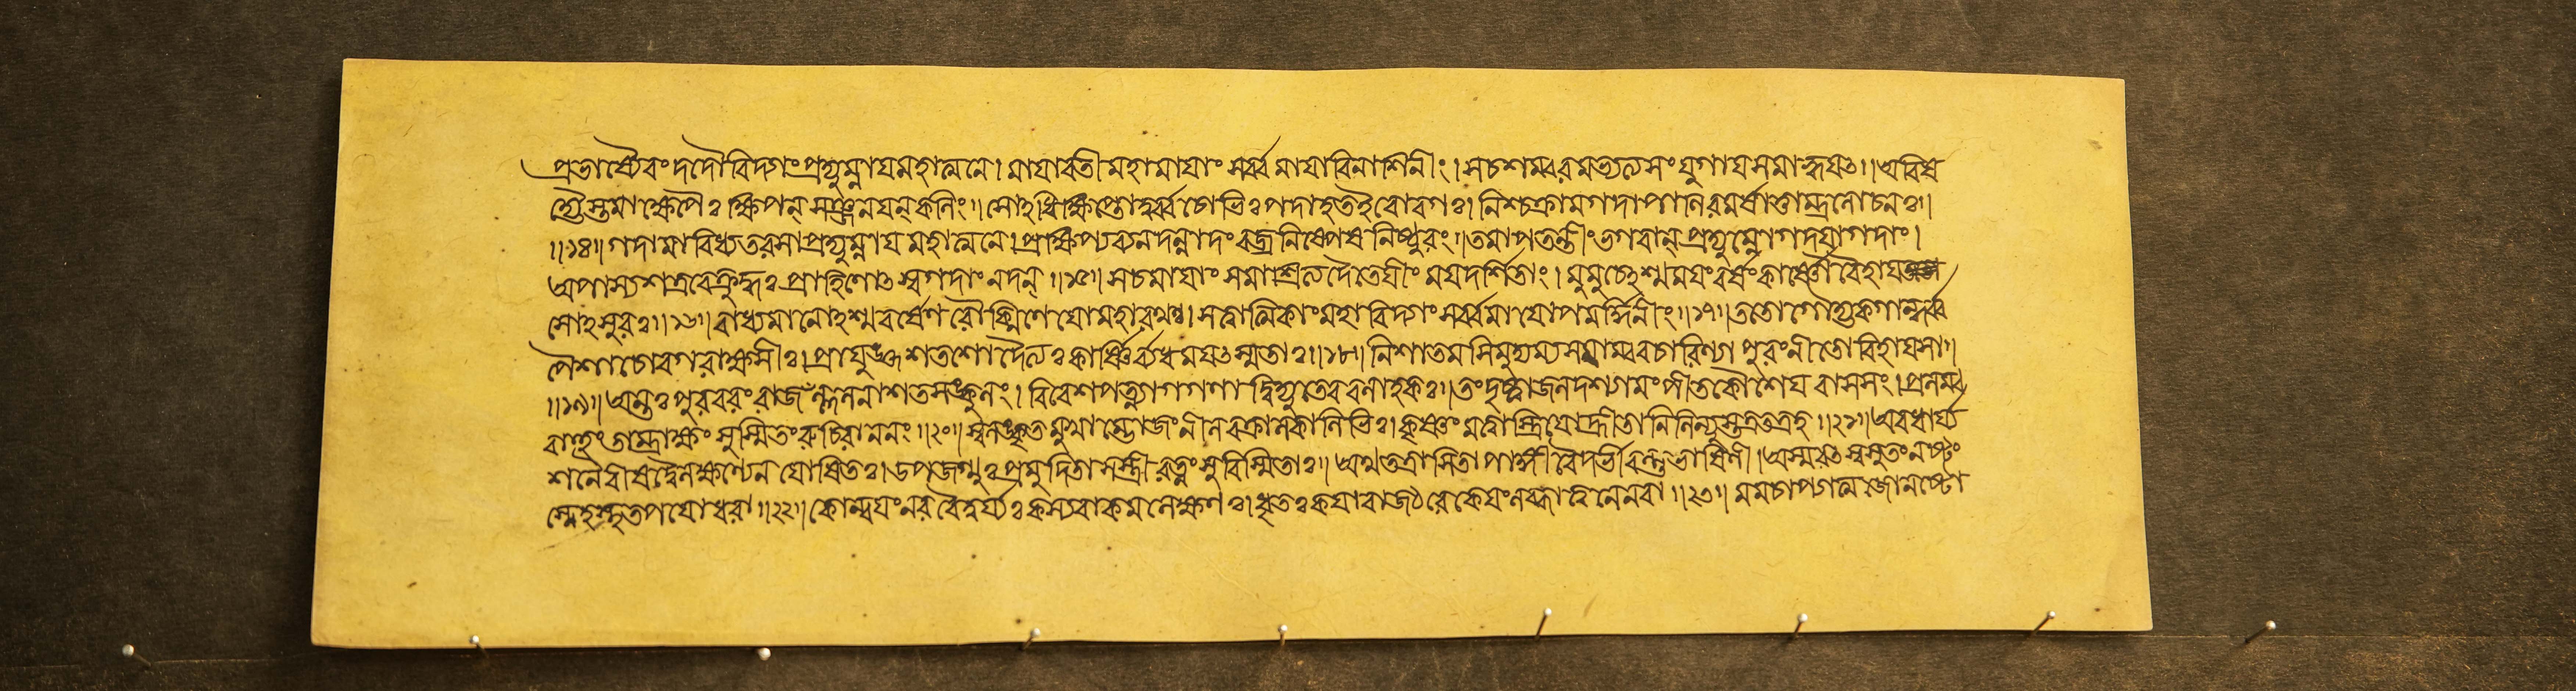 প্রভাষ্যৈবং দদৌ বিদ্যাং প্রদ্যুম্নায় মহাত্মনে। মায়াবতী মহামায়াং সর্ব্বমায়াবিনাশিনীং। স চ শম্বরমভ্যেত্য সংযুগায় সমাহ্বয়ৎ॥ অবিষ
হ্যৈস্তমাক্ষেপৈঃ ক্ষিপন্ সঞ্জনয়ন্ কলিং॥ সোঽধিক্ষিপ্তো দুর্ব্বচোভিঃ পদাহত ইবোরগঃ। নিশ্চক্রাম গদাপাণিরমর্ষাত্তাম্রলোচনঃ॥
॥১৪॥ গদামাবিধ্য তরসা প্রদ্যুম্নায় মহাত্মনে। প্রক্ষিপ্য ব্যনদন্নাদং বজ্রনিষ্পেষনিষ্ঠুরং॥ তমাপতন্তীং ভগবান্ প্রদ্যুম্নো গদয়া গদাং।
অপাস্য শত্রবে ক্রুদ্ধঃ প্রাহিণোৎ স্বগদাং নদন্॥১৫॥ স চ মায়াং সমাশ্রিত্য দৈতেয়ীং ময়দর্শিতাং। মুমুচেঽশ্মময়ং বর্ষং কার্ষ্ণৌ বৈহায়
সোঽসুরঃ॥১৬॥ বাধ্যমানোঽশ্মবর্ষেণ রৌক্মিণেয়ো মহারথঃ। সত্বাত্মিকাং মহাবিদ্যাং সর্ব্বমায়োপমর্দ্দিনীং॥১৭॥ ততো গৌহ্যকগান্ধর্ব্ব
পৈশাচোরগরাক্ষসীঃ। প্রাযুঙ্ক্ত শতশো দৈত্যঃ কার্ষ্ণির্ব্যধময়ৎ স্ম তাঃ॥১৮॥ নিশাতমসিমুদ্যম্য পুরং নীতো বিহায়সা॥
॥১৯॥ অন্তঃপুরবরং রাজঁল্ললনাশতসঙ্কুলং। বিবেশ পত্ন্যা গগণাদ্বিদ্যুতেব বলাহকঃ॥ তং দৃষ্ট্বা জলদশ্যামং পীতকৌশেয়বাসসং। প্রলম্ব
বাহুং তাম্রাক্ষং সুস্মিতং রুচিরাননং॥২০॥ স্বলঙ্কৃতমুখাম্ভোজং নীলবক্রালকালিভিঃ। কৃষ্ণং মত্বা স্ত্রিয়ো হ্রীতা নিলিল্যুস্তত্রতত্রহ॥২১॥ অবধার্য্য
শনৈরীষদ্বৈলক্ষণ্যেন যোষিতঃ। উপজগ্মুঃ প্রমুদিতা সস্ত্রীরত্নং সুবিস্মিতাঃ॥ অথ তত্রাসিতাপাঙ্গী বৈদর্ভী বল্গুভাষিণী। অস্মরৎ স্বসুতং নষ্টং
স্নেহস্নুতপয়োধরা॥২২॥ কোন্বয়ং নরবৈদূর্য্যঃ কস্য বা কমলেক্ষণঃ। ধৃতঃ কয়া বা জঠরে কেয়ং লব্ধা ত্বনেন বা॥২৩॥ মম চাপ্যাত্মজো নষ্টো